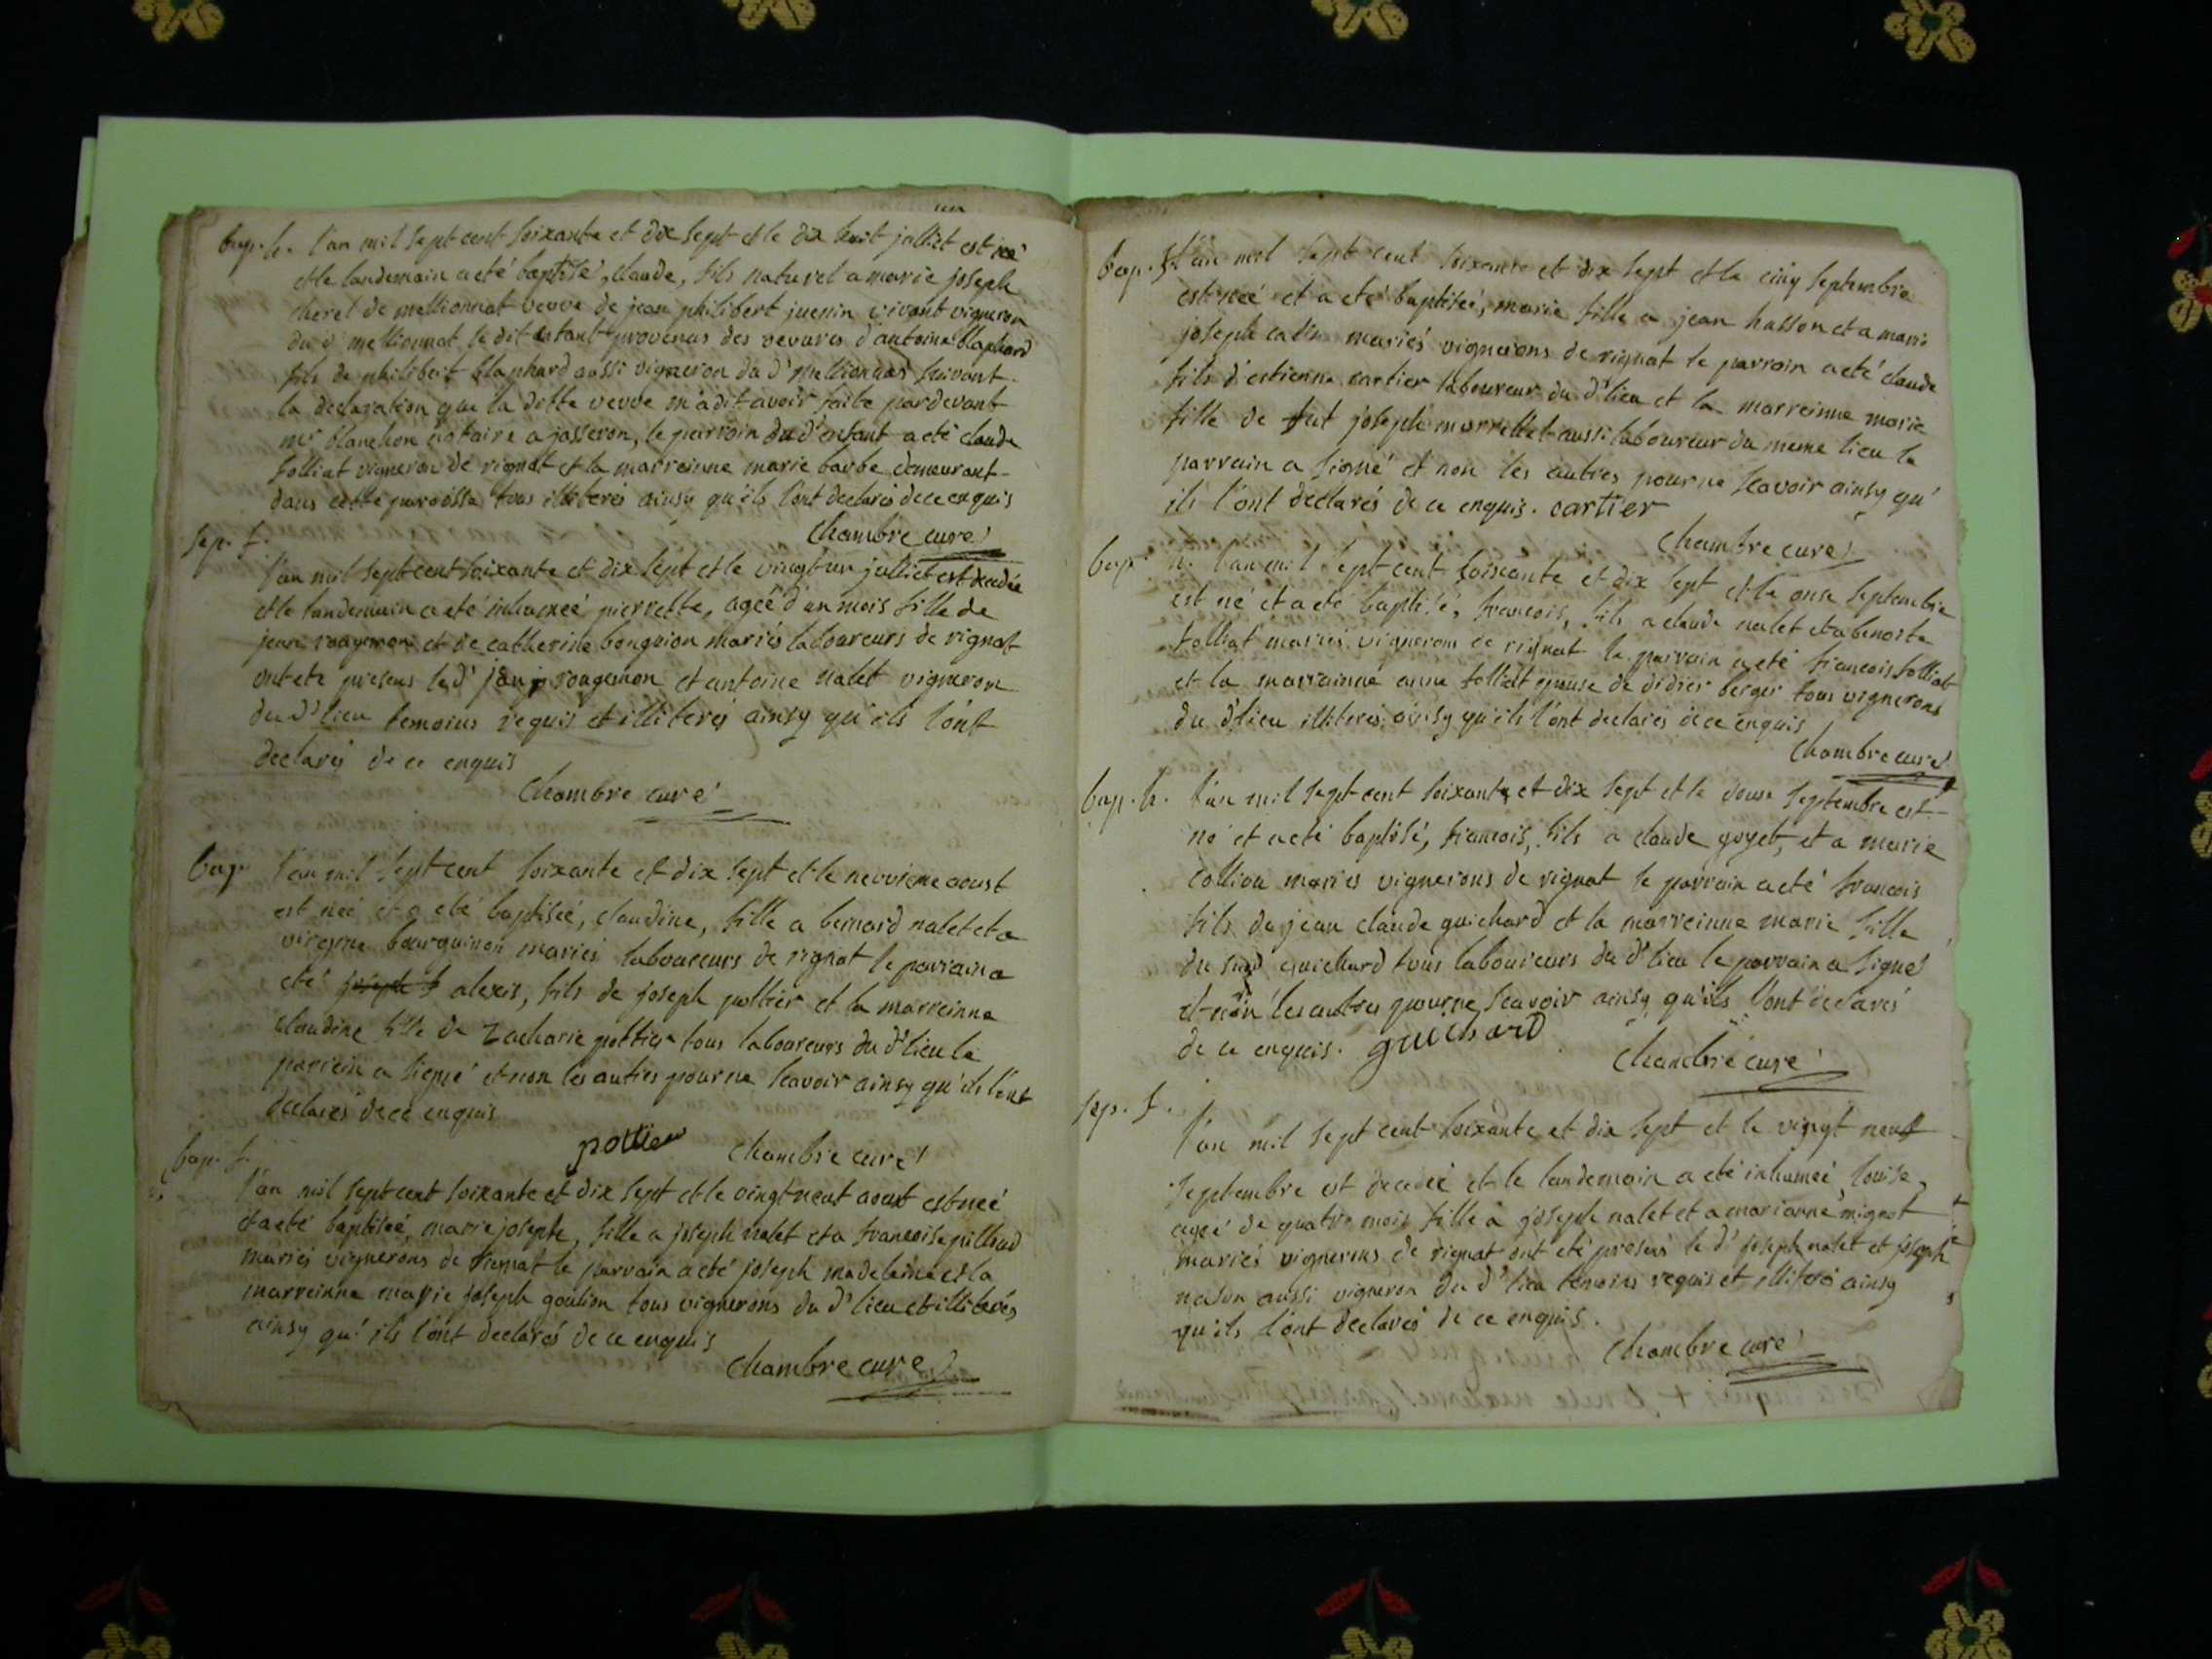 bap. h. l'an mil sept cent soixante et dix sept et le dix huit julliet est né
et le landemain a eté baptisé, claude, fils naturel a marie joseph
cheret de mellionnat veuve de jean philibert juenin vivant vigneron
du d mellionnat le dit enfant provenus des oeuvres d'antoine blaphard
fils de philibert blaphard aussi vigneron du d' mellionnat suivant
la declaration que la ditte veuve m'a dit avoir faite pardevant
mr blanchon notaire a jasseron, le parrain du d' enfant a eté claude
folliat vigneron de rignat et la marreinne marie barbe demeurant
dans cette paroisse tous illiterés ainsy qu'ils l'ont declarés de ce enquis
Chambre curé
sep. f.
l'an mil sept cent soixante et dix sept et le vingt un julliet est decedée
et le landemain a eté inhumeé pierrette, ageé d'un mois fille de
jean rougemon et de catherine bonguion mariés laboureurs de rignat
ont eté presens le d' jean rougemon et antoine nalet vigneron
du d' lieu temoins requis et illiterés ainsy qu'ils l'ont
declarés de ce enquis
Chambre curé
bap. l'an mil sept cent soixante et dix sept et le neuvieme aoust
est neé et a eté baptiseé, claudine, fille a bernard nalet et a
virginne bourguinon mariés laboureurs de rignat le parrain a
eté joseph alexis, fils de joseph pottier et la marreinne
claudine fille de zacharie pottier tous laboureurs du d' lieu le
parrein a signé et non les autres pour ne scavoir ainsy qu'ils l'ont
declarés de ce enquis
pottier Chambre curé
bap. f.
l'an mil sept cent soixante et dix sept et le vingt neuf aoust est neé
et a eté baptiseé, marie josephe, fille a joseph nalet et a francoise pilliard
mariés vignerons de rignat le parvain a eté joseph madeleine et la
marreinne marie joseph goulion tous vignerons du d' lieu et illiterés
ainsy qu'ils l'ont declarés de ce enquis
Chambre curé
bap. f. l'an mil sept cent soixante et dix sept et le cinq septembre
est neé et a eté baptiseé, marie fille a jean husson et a marie
joseph catin mariés vignerons de rignat le parroin a eté claude
fils d'estienne cartier laboureur du d' lieu et la marreinne marie
fille de fut joseph morrellet aussi laboureur du meme lieu le
parrain a signé et non les autres pour ne scavoir ainsy qu'
ils l'ont declarés de ce enquis. cartier
Chambre curé
bap. h. l'an mil sept cent soixante et dix sept et le onse septembre
est né et a eté baptisé, francois, fils a claude nalet et a benoite
folliat mariés vignerons de rignat le parrain a eté francois folliat
et la marrainne anne folliat epouse de didier berger tous vignerons
du d' lieu illiterés ainsy qu'ils l'ont declarés de ce enquis
Chambre curé
bap. h. l'an mil sept cent soixante et dix sept et le douse septembre est
né et a eté baptisé, francois, fils a claude goyet, et a marie
collion mariés vignerons de rignat le parrain a eté francois
fils de jean claude guichard et la marreinne marie fille
du sud' guichard tous laboureurs du d' lieu le parrain a signé
et non les autres pour ne scavoir ainsy qu'ils l'ont declarés
de ce enquis. guichard
Chambre curé
sep. f.
l'an mil sept cent soixante et dix sept et le vingt neuf
septembre est decedeé et le landemain a eté inhumeé, louise,
ageé de quatre mois fille a joseph nalet et a marianne mignot
mariés vignerons de rignat ont eté presens le d' joseph nalet et joseph
nason aussi vigneron du d' lieu temoins requis et illiterés ainsy
qu'ils l'ont declarés de ce enquis.
Chambre curé